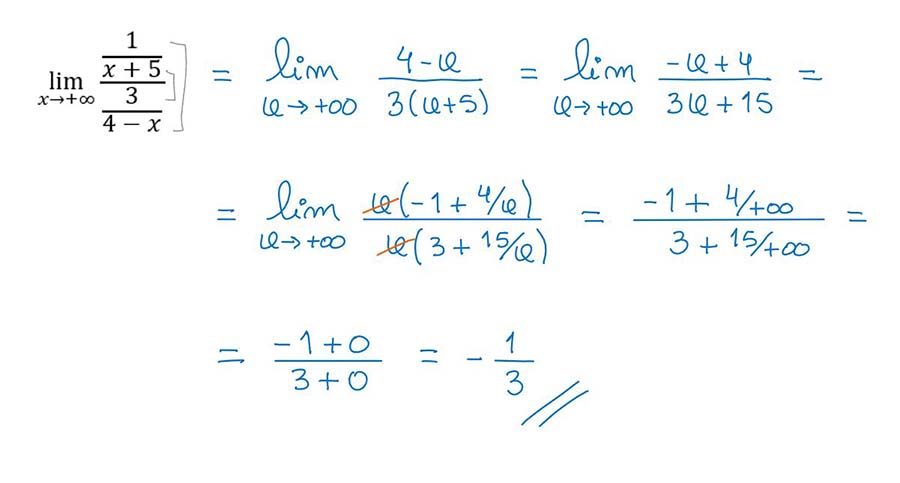 lim x→+∞ (1/(x + 5))/(3/(4 − x)) = lim x→+∞ (4-x)/(3(x+5)) = lim x→+∞ (-x+4)/(3x+15) =
= lim x→+∞ x(-1+4/x)/x(3+15/x) = (-1+4/+∞)/(3+15/+∞) =
= (-1+0)/(3+0) = -1/3